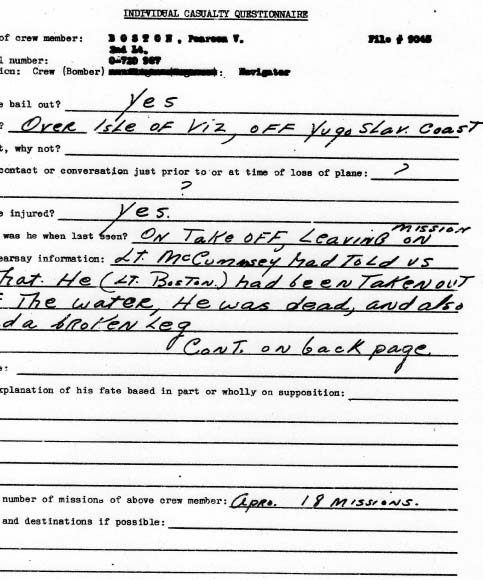 INDIVIDUAL CASUALTY QUESTIONNAIRE
of crew member: BOSTON, Pearson V. File # 9045
2nd Lt.
l number: O-720 987
ion: Crew (Bomber) : Navigator
e bail out? Yes
? Over Isle of Viz, off Yugo Slav. Coast
t, why not?
contact or conversation just prior to or at time of loss of plane: ?
?
e injured? Yes.
was he when last seen? On Take off, Leaving on mission
earsay information: Lt. McCummsey had Told us
hat. He (Lt. Boston.) had been Taken out
f The water, He was dead, and also
d a broken Leg
Cont. on back page.
e:
xplanation of his fate based in part or wholly on supposition:
number of missions of above crew member: Apro. 18 missions.
and destinations if possible: